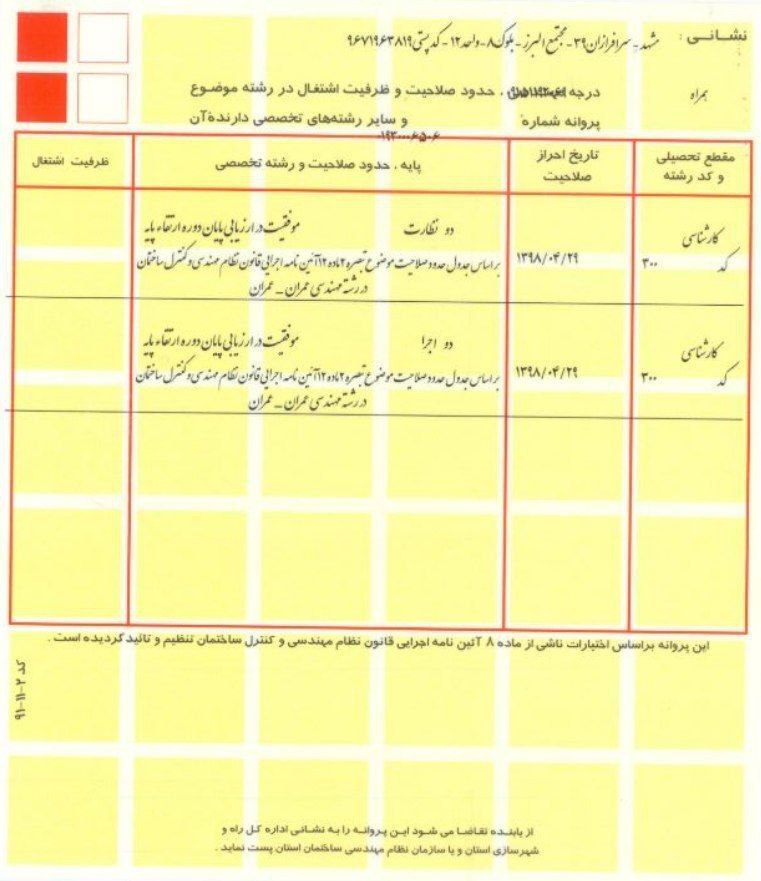 نشانی : مشهد - سرافرازان ۳۹ - مجتمع البرز - بلوک ۸ - واحد ۱۲ - کد پستی ۹۶۷۱۹۶۳۸۱۹
همراه
درجه ، حدود صلاحیت و ظرفیت اشتغال در رشته موضوع
پروانه شماره و سایر رشته‌های تخصصی دارنده آن
مقطع تحصیلی و کد رشته
تاریخ احراز صلاحیت
پایه ، حدود صلاحیت و رشته تخصصی
ظرفیت اشتغال
کارشناسی
کد ۳۰۰
۱۳۹۸/۰۴/۲۹
دو نظارت موفقیت در ارزیابی پایان دوره ارتقاء پایه
براساس جدول حدود صلاحیت موضوع تبصره ۲ ماده ۱۲ آئین نامه اجرایی قانون نظام مهندسی و کنترل ساختمان
در رشته مهندسی عمران _ عمران
کارشناسی
کد ۳۰۰
۱۳۹۸/۰۴/۲۹
دو اجرا موفقیت در ارزیابی پایان دوره ارتقاء پایه
براساس جدول حدود صلاحیت موضوع تبصره ۲ ماده ۱۲ آئین نامه اجرایی قانون نظام مهندسی و کنترل ساختمان
در رشته مهندسی عمران _ عمران
این پروانه براساس اختیارات ناشی از ماده ۸ آئین نامه اجرایی قانون نظام مهندسی و کنترل ساختمان تنظیم و تائید گردیده است .
کد ۲-۱۱-۹۱
از یابنده تقاضا می شود این پروانه را به نشانی اداره کل راه و
شهرسازی استان و یا سازمان نظام مهندسی ساختمان استان پست نماید .